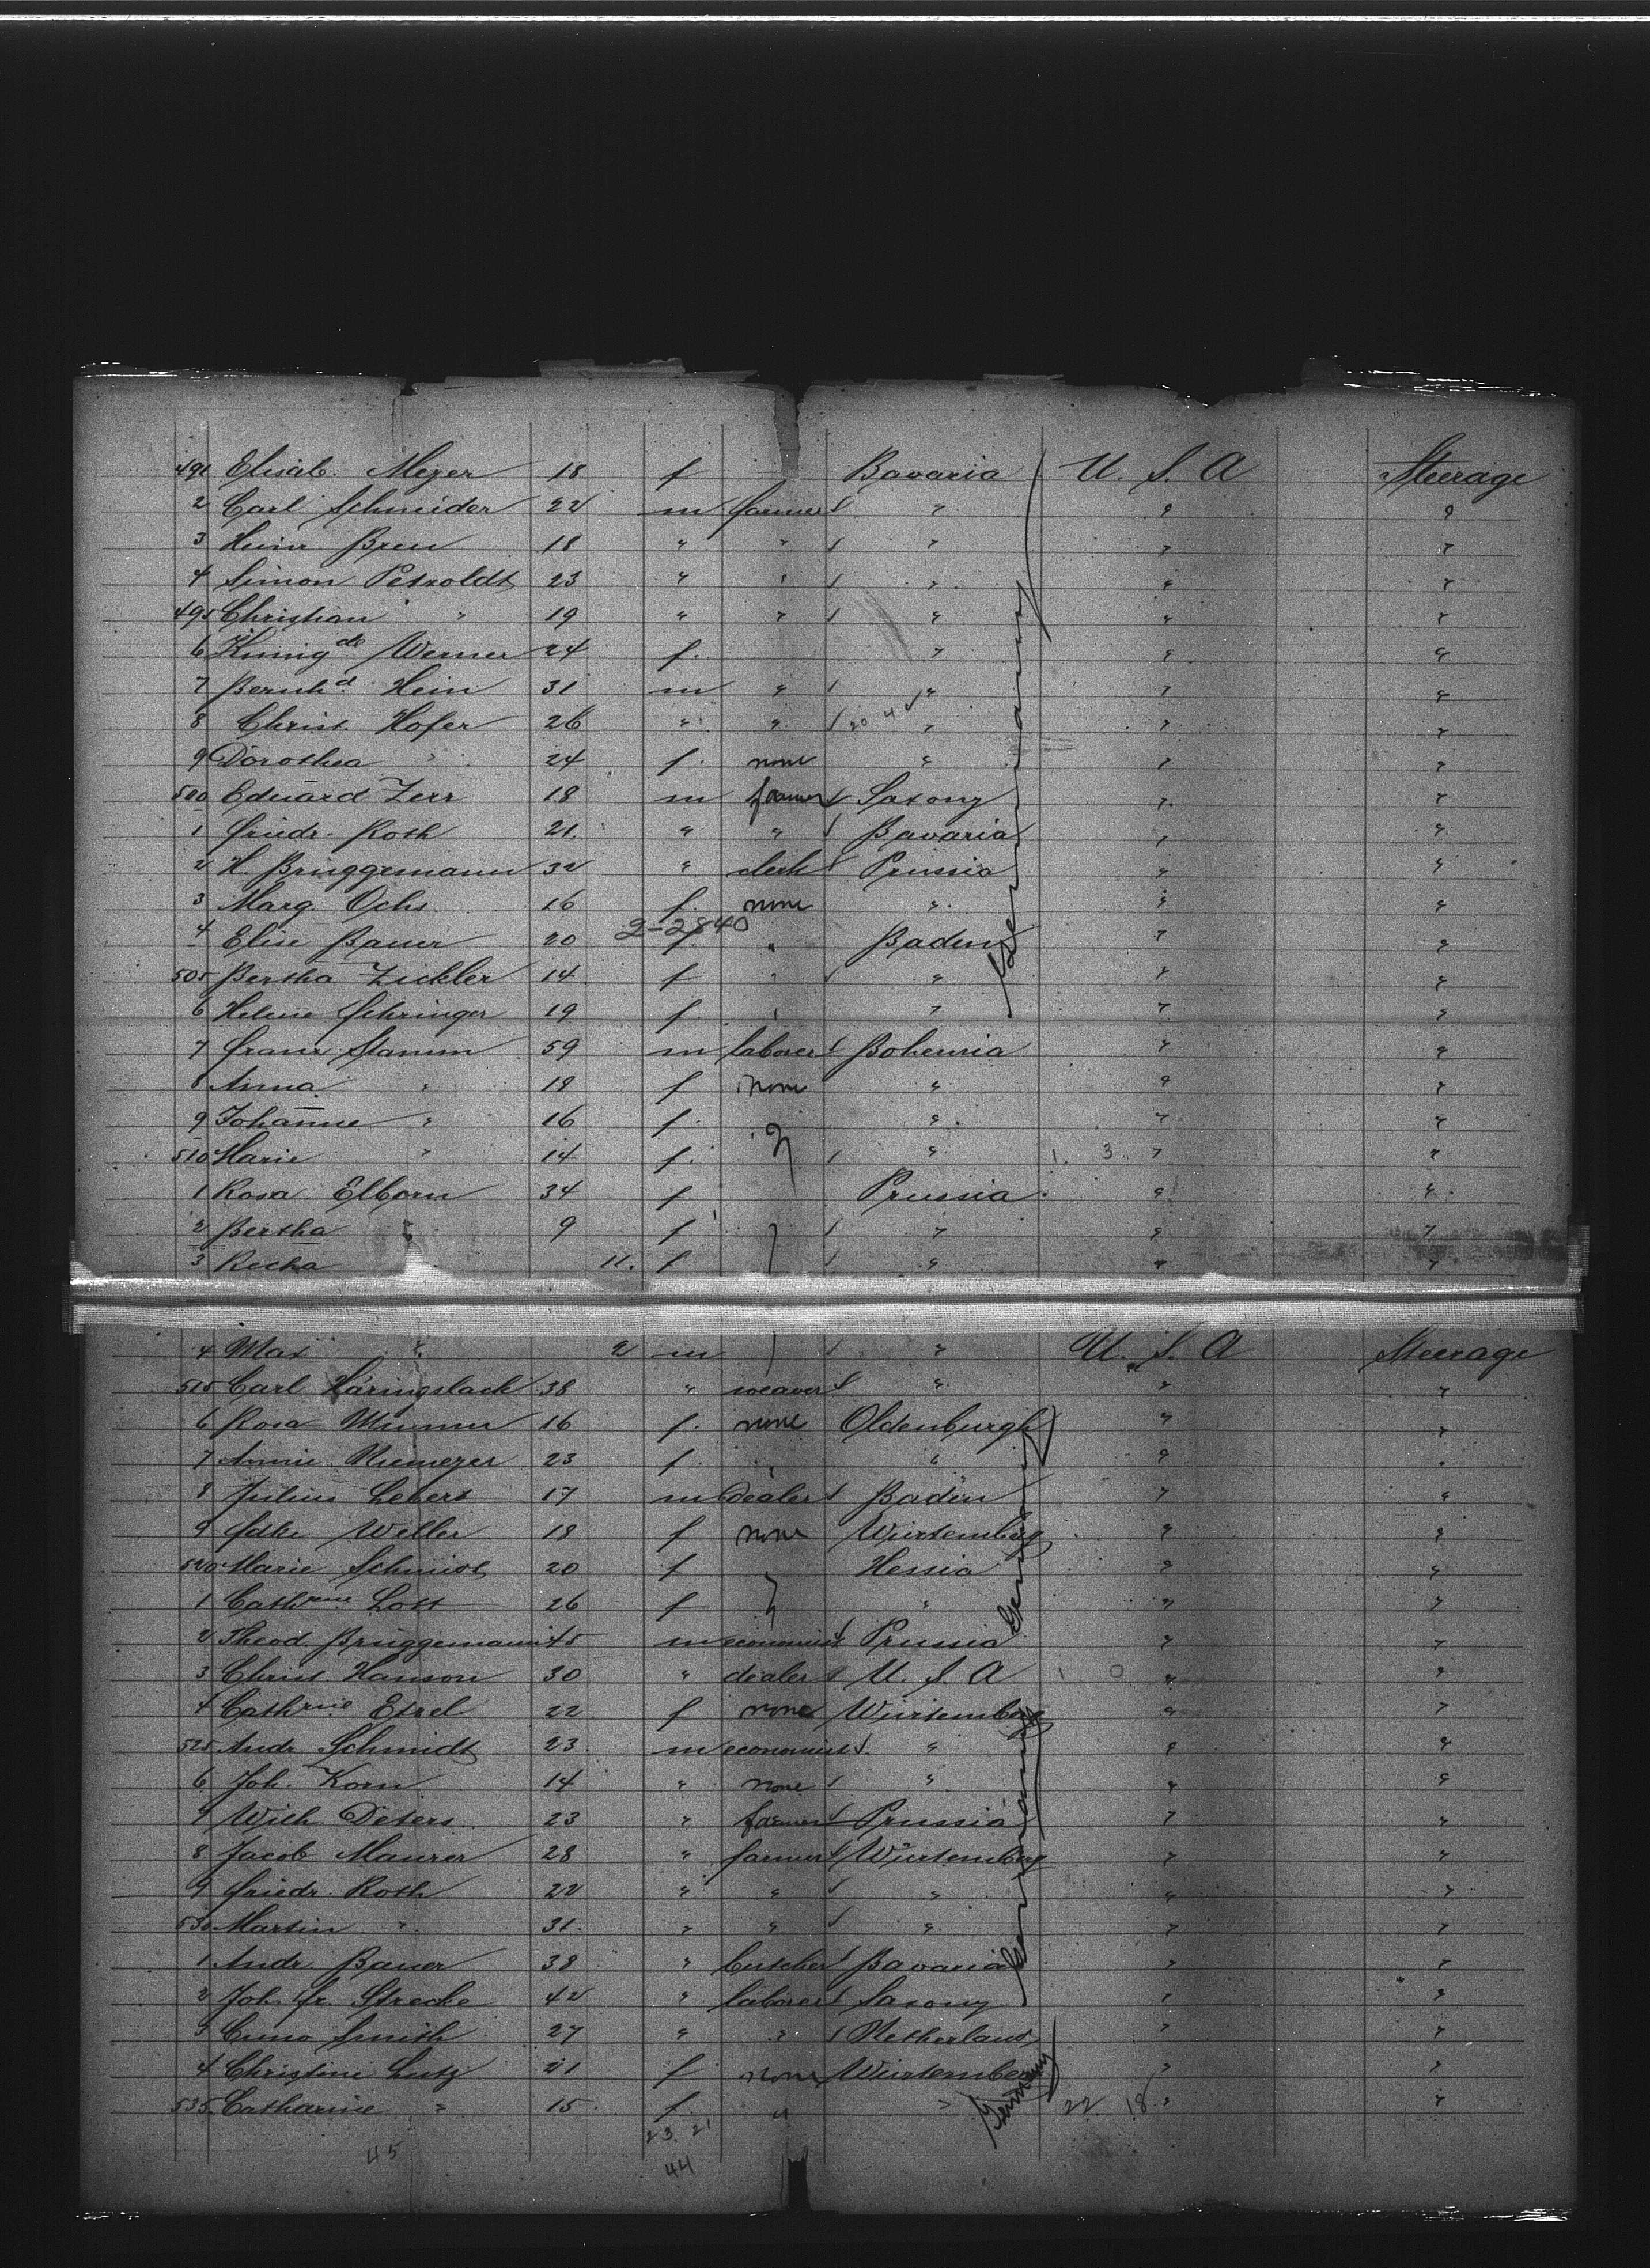 491 Elisab. Meyer 18 f Bavaria U. S. A Steerage
2 Carl Schneider 22 m farmer " " "
3 Heinr. Breu 18 " " " " "
4 Simon Petzoldt 23 " " " " "
495 Christian " 19 " " " " "
6 Kunig de Werner 24 f. " " "
7 Bernhd. Hein 31 m " " " "
8 Christ. Hofer 26 " " 20 4 " " "
9 Dorothea " 24 f. none " " "
500 Eduard Zerr 18 m farmer Saxony " "
1 Friedr. Roth 21. " " Bavaria " "
2 H. Brüggemann 32 " clerk Prussia " "
3 Marg. Ochs 16 f. none " " "
2-2840
4 Elise Bauer 20 f. " Baden " "
505 Bertha Zickler 14 f " " " "
6 Helene Schringer 19 f. " " " "
Germany
7 Franz Stamm 59 m laborer Bohemia " "
8 Anna " 18 f none " " "
9 Johanne " 16 f. " " "
510 Marie " 14 f. " 1. 3 " "
1 Rosa Elborn 34 f Prussia " "
2 Bertha " 9 f " " "
3 Recha 11. f " " "
4 Max " 2 m " U. S. A Steerage
515 Carl Häringslack 38 " weaver " " "
6 Rosa Mumm 16 f. none Oldenburgh " "
7 Annie Niemeyer 23 f " " " "
8 Julius Lebert 17 m dealer Baden " "
9 Weller 18 f none Würtemberg " "
520 Marie Schmidt 20 f Hessia " "
1 Cathrine Lott 26 f " " "
Germany
2 Theod. Brüggemann 45 m economist Prussia " "
3 Christ. Hanson 30 " dealer U. S. A 1 0 " "
4 Cathrine Etzel 22 f none Würtemberg " "
525 Andr. Schmidt 23. m economist " " "
6 Joh. Korn 14 " none " " "
7 Wilh. Deters 23 " farmer Prussia " "
8 Jacob Maurer 28 " farmer Würtemberg " "
9 Friedr. Roth 22 " " " " "
530 Martin " 31. " " " " "
1 Andr. Bauer 38 " butcher Bavaria " "
2 Joh. Fr. Strecke 42 " laborer Saxony " "
Germany
3 Cuno Smith 27 " " Netherland " "
4 Christine Lutz 21 f none Würtemberg " "
535. Catharine " 15 f. " " 22 18 " "
Germany
45 23. 21
44